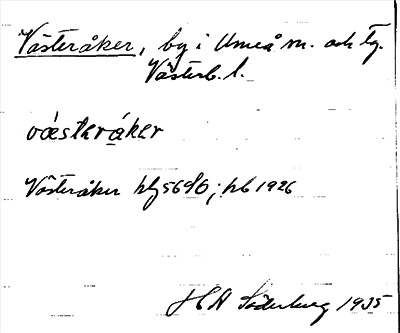 Västeråker, by i Umeå sn. och tg.
Västerb. l.
västeråker
Västeråker hfl 56 ; hb 1926
HA Söderberg 1935